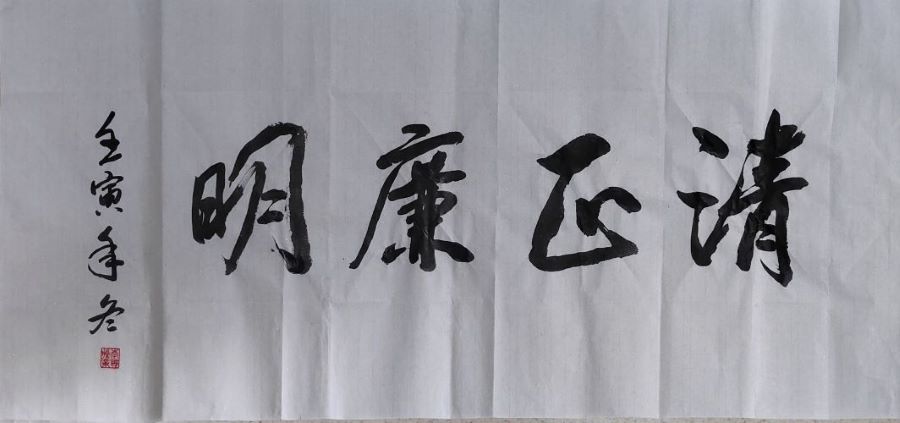 清正廉明
壬寅年冬